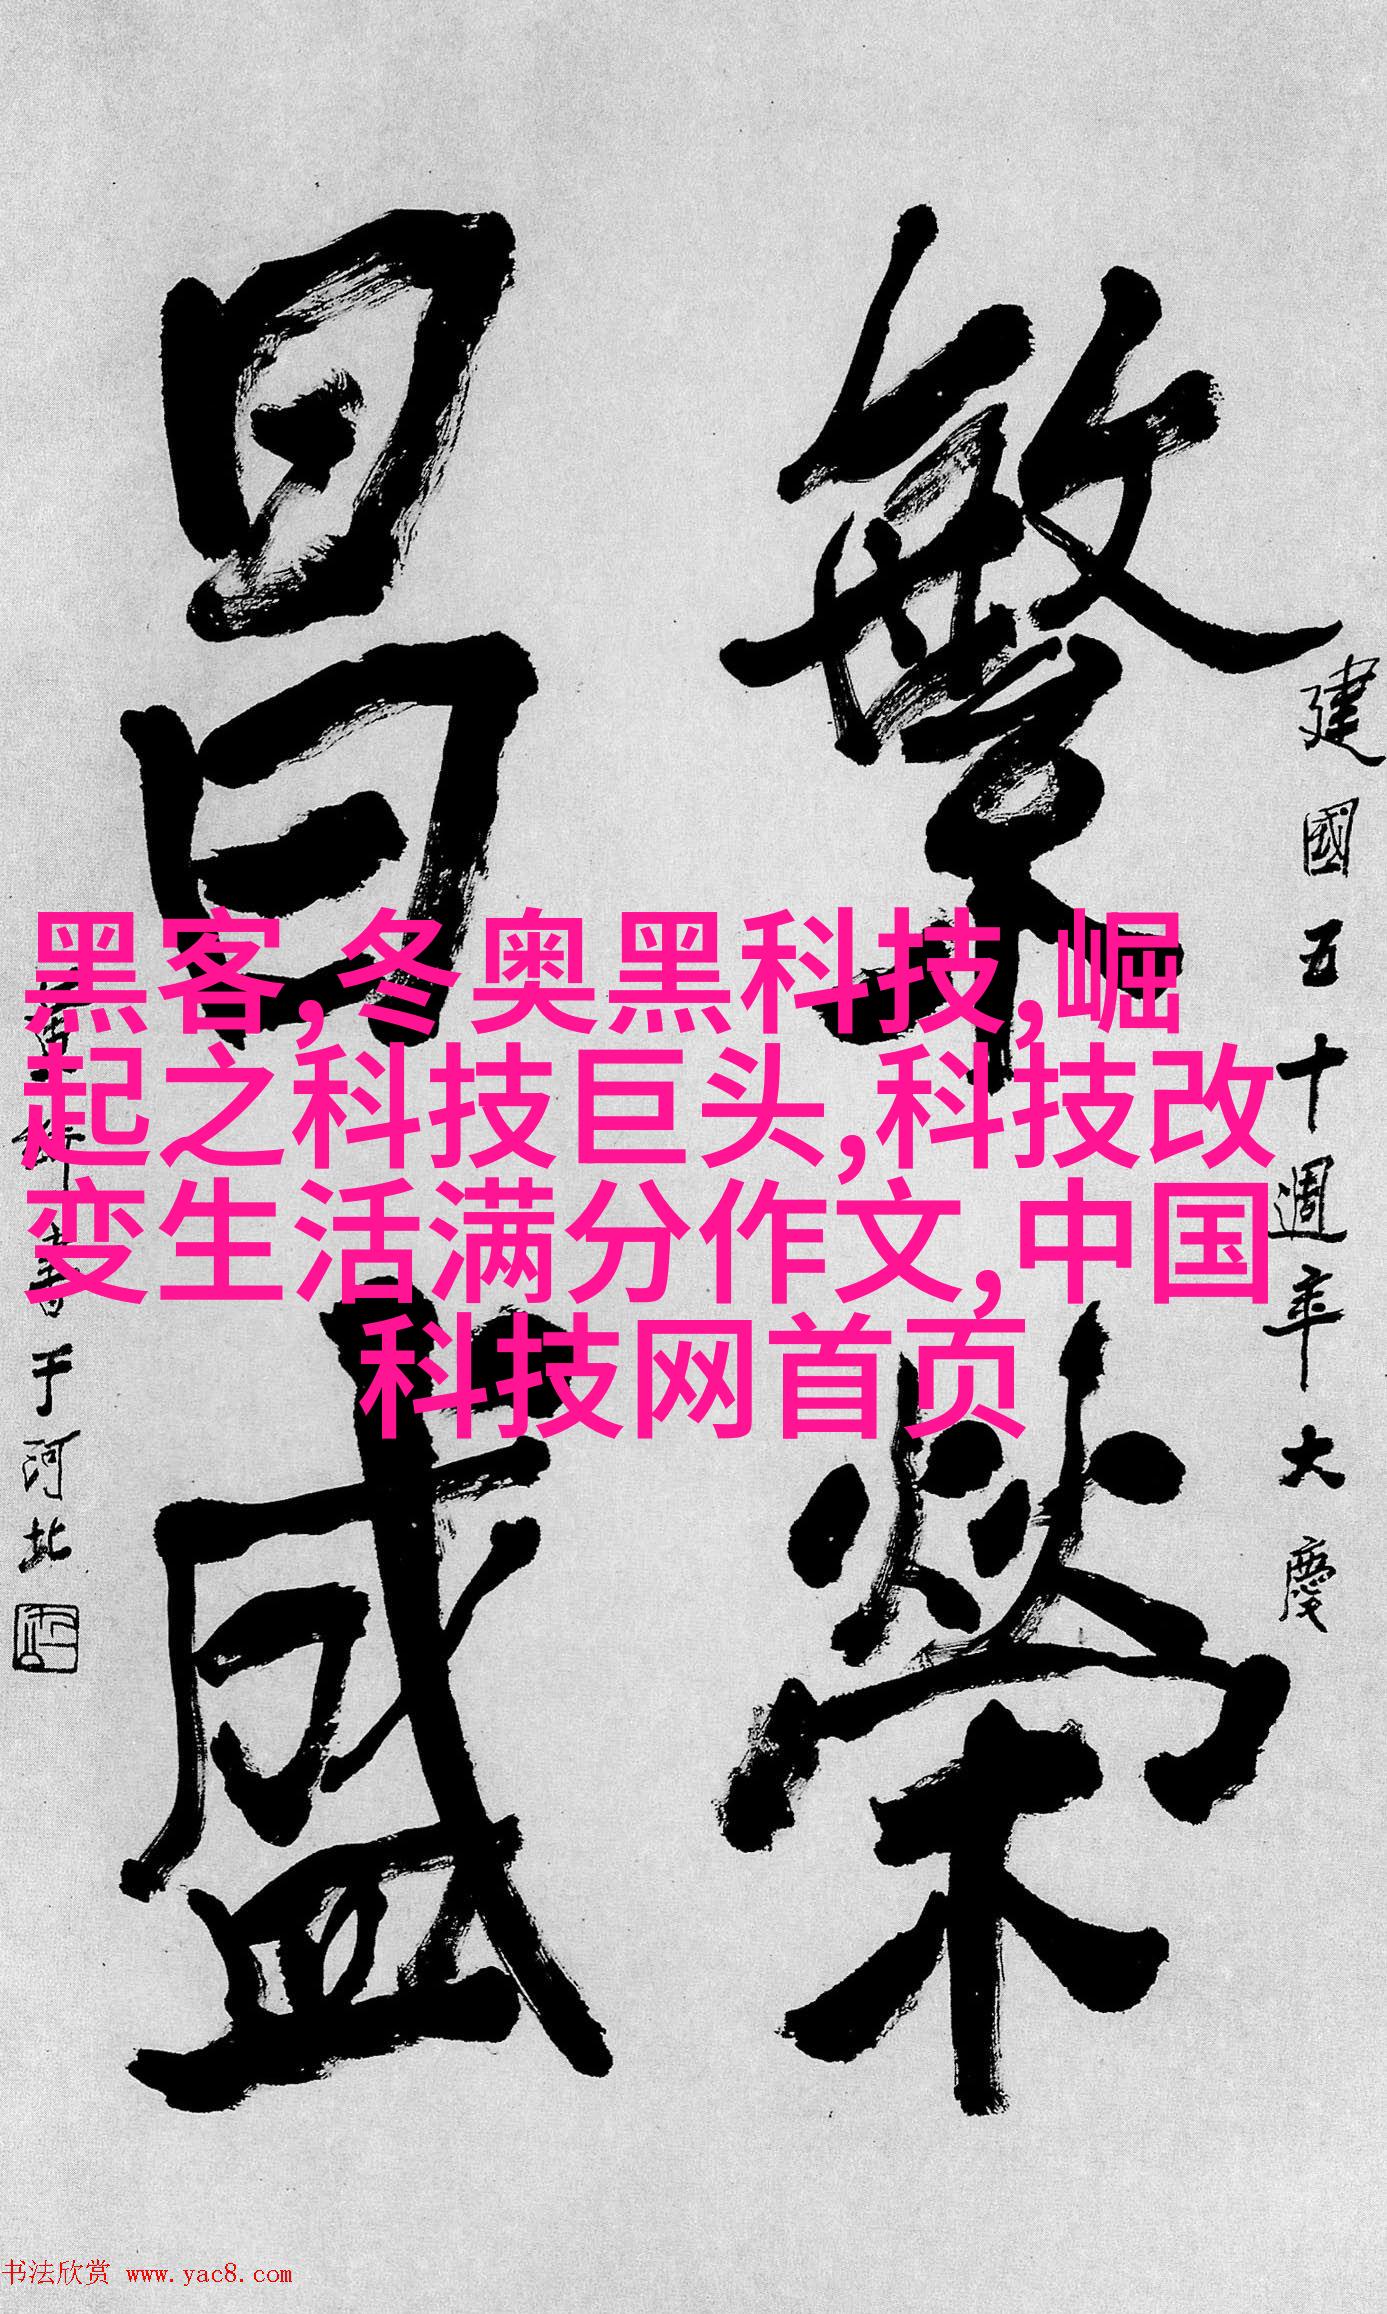 建國五十週年大慶
繁榮
昌盛
書于河北
黑客,冬奥黑科技,崛
起之科技巨头,科技改
变生活满分作文,中国
科技网首页
书法欣赏 www.yac8.com